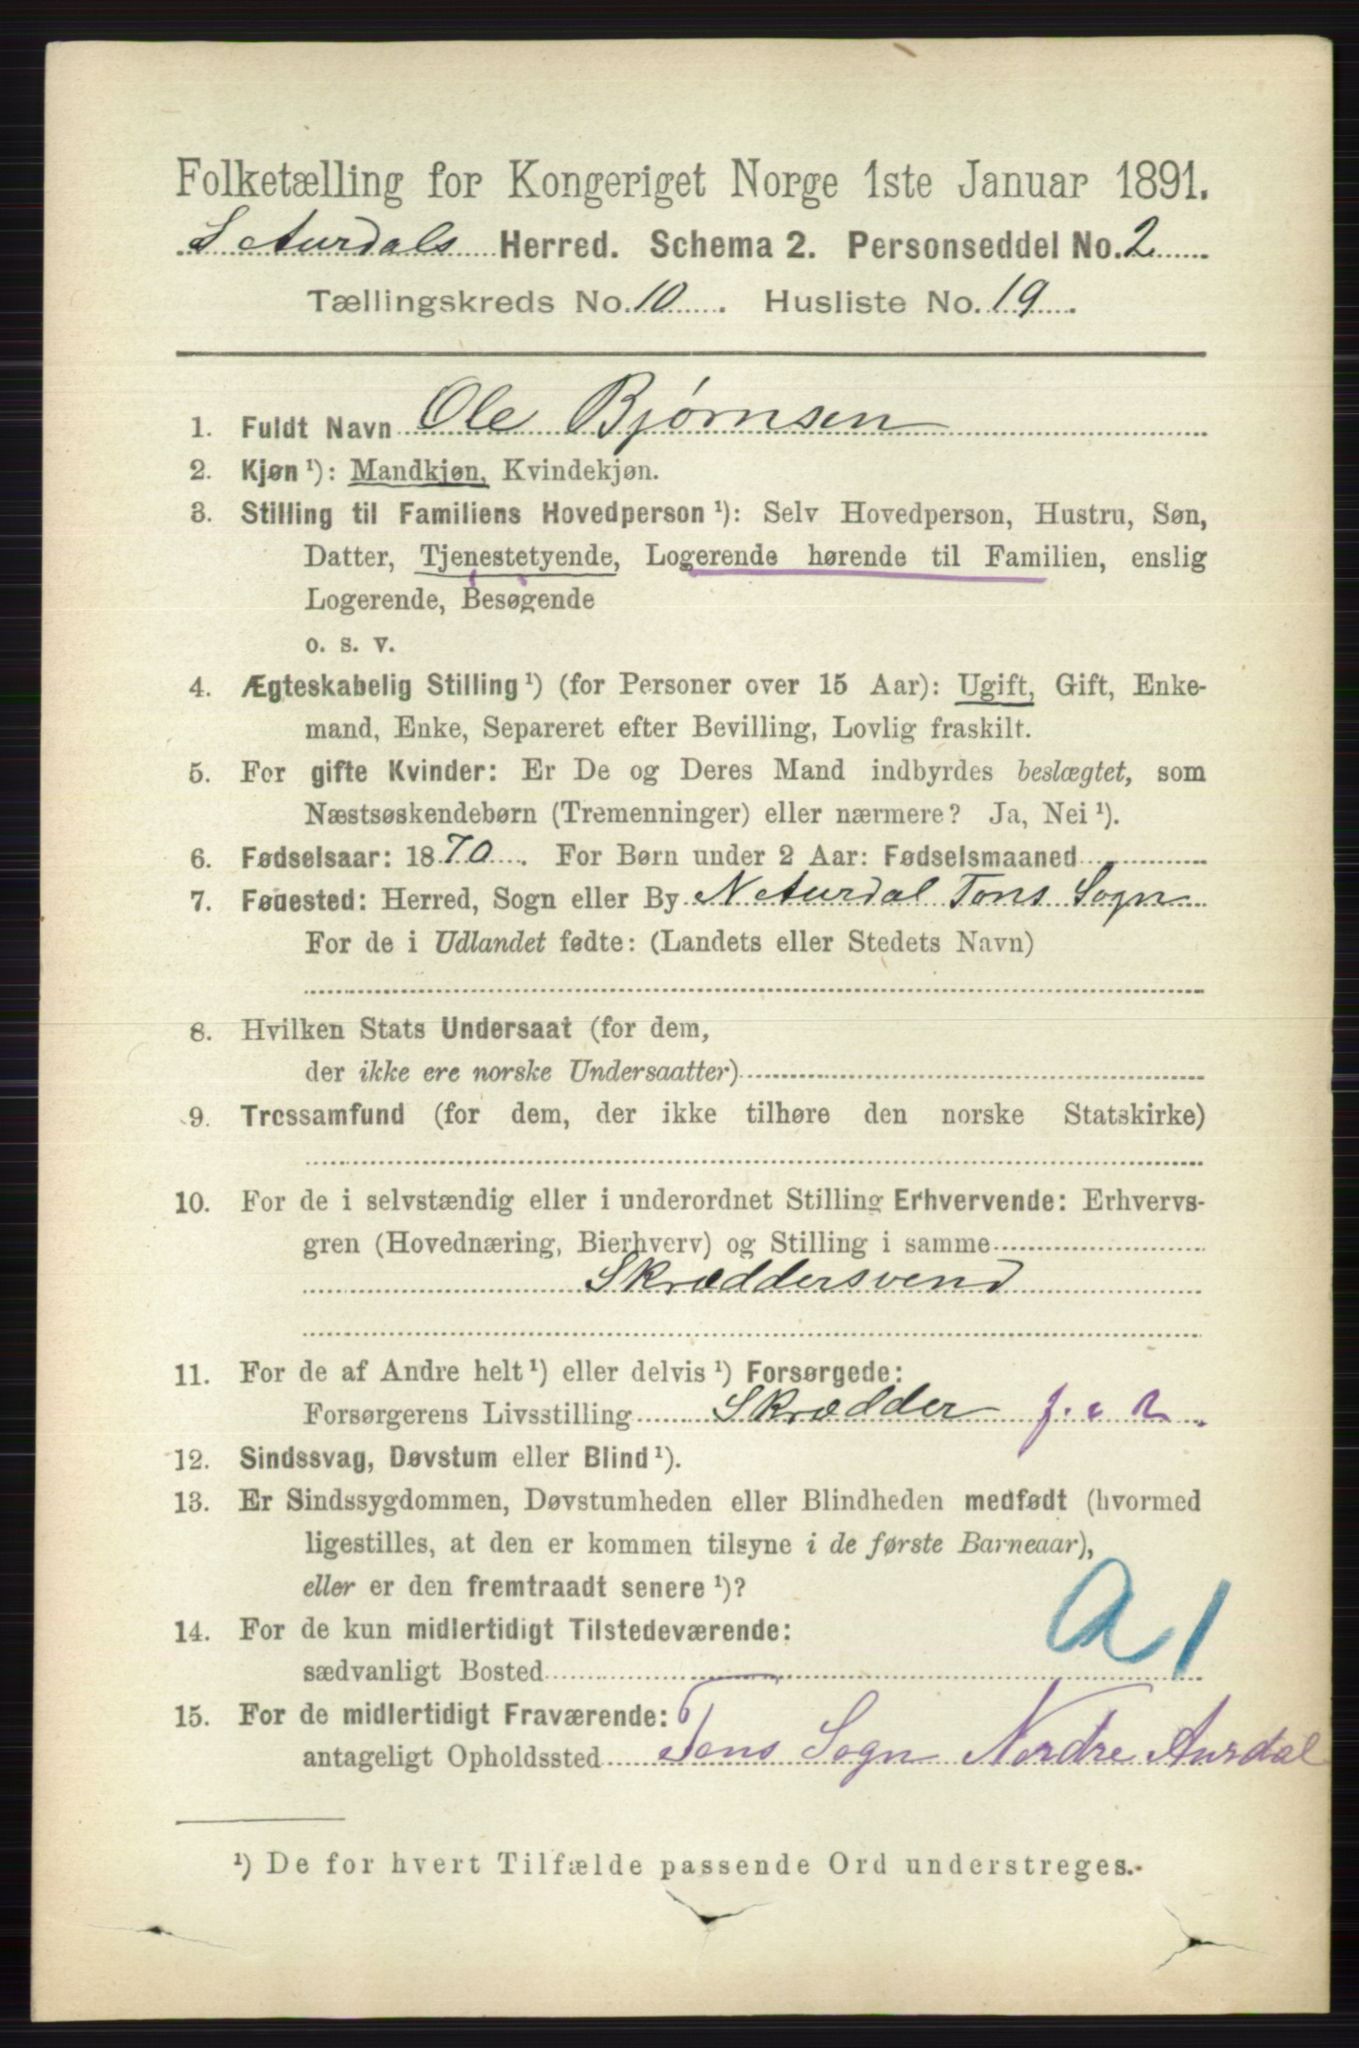 Folketælling for Kongeriget Norge 1ste Januar 1891.
S Aurdals Herred. Schema 2. Personseddel No. 2
Tællingskreds No. 10. Husliste No. 19.
1. Fuldt Navn Ole Bjørnsen
2. Kjøn ¹): Mandkjøn, Kvindekjøn.
3. Stilling til Familiens Hovedperson ¹): Selv Hovedperson, Hustru, Søn,
Datter, Tjenestetyende, Logerende hørende til Familien, enslig
Logerende, Besøgende
o. s. v.
4. Ægteskabelig Stilling ¹) (for Personer over 15 Aar): Ugift, Gift, Enke-
mand, Enke, Separeret efter Bevilling, Lovlig fraskilt.
5. For gifte Kvinder: Er De og Deres Mand indbyrdes beslægtet, som
Næstsøskendebørn (Tremenninger) eller nærmere? Ja, Nei ¹).
6. Fødselsaar: 1870. For Børn under 2 Aar: Fødselsmaaned
7. Fødested: Herred, Sogn eller By N Aurdal Tons Sogn
For de i Udlandet fødte: (Landets eller Stedets Navn)
8. Hvilken Stats Undersaat (for dem,
der ikke ere norske Undersaatter)
9. Trossamfund (for dem, der ikke tilhøre den norske Statskirke)
10. For de i selvstændig eller i underordnet Stilling Erhvervende: Erhvervs-
gren (Hovednæring, Bierhverv) og Stilling i samme
Skræddersvend
11. For de af Andre helt ¹) eller delvis ¹) Forsørgede:
Forsørgerens Livsstilling Skrædder
12. Sindssvag, Døvstum eller Blind ¹).
13. Er Sindssygdommen, Døvstumheden eller Blindheden medfødt (hvormed
ligestilles, at den er kommen tilsyne i de første Barneaar),
eller er den fremtraadt senere ¹)?
a 1
14. For de kun midlertidigt Tilstedeværende:
sædvanligt Bosted
15. For de midlertidigt Fraværende:
antageligt Opholdssted Tons Sogn Nordre Aurdal
¹) De for hvert Tilfælde passende Ord understreges.